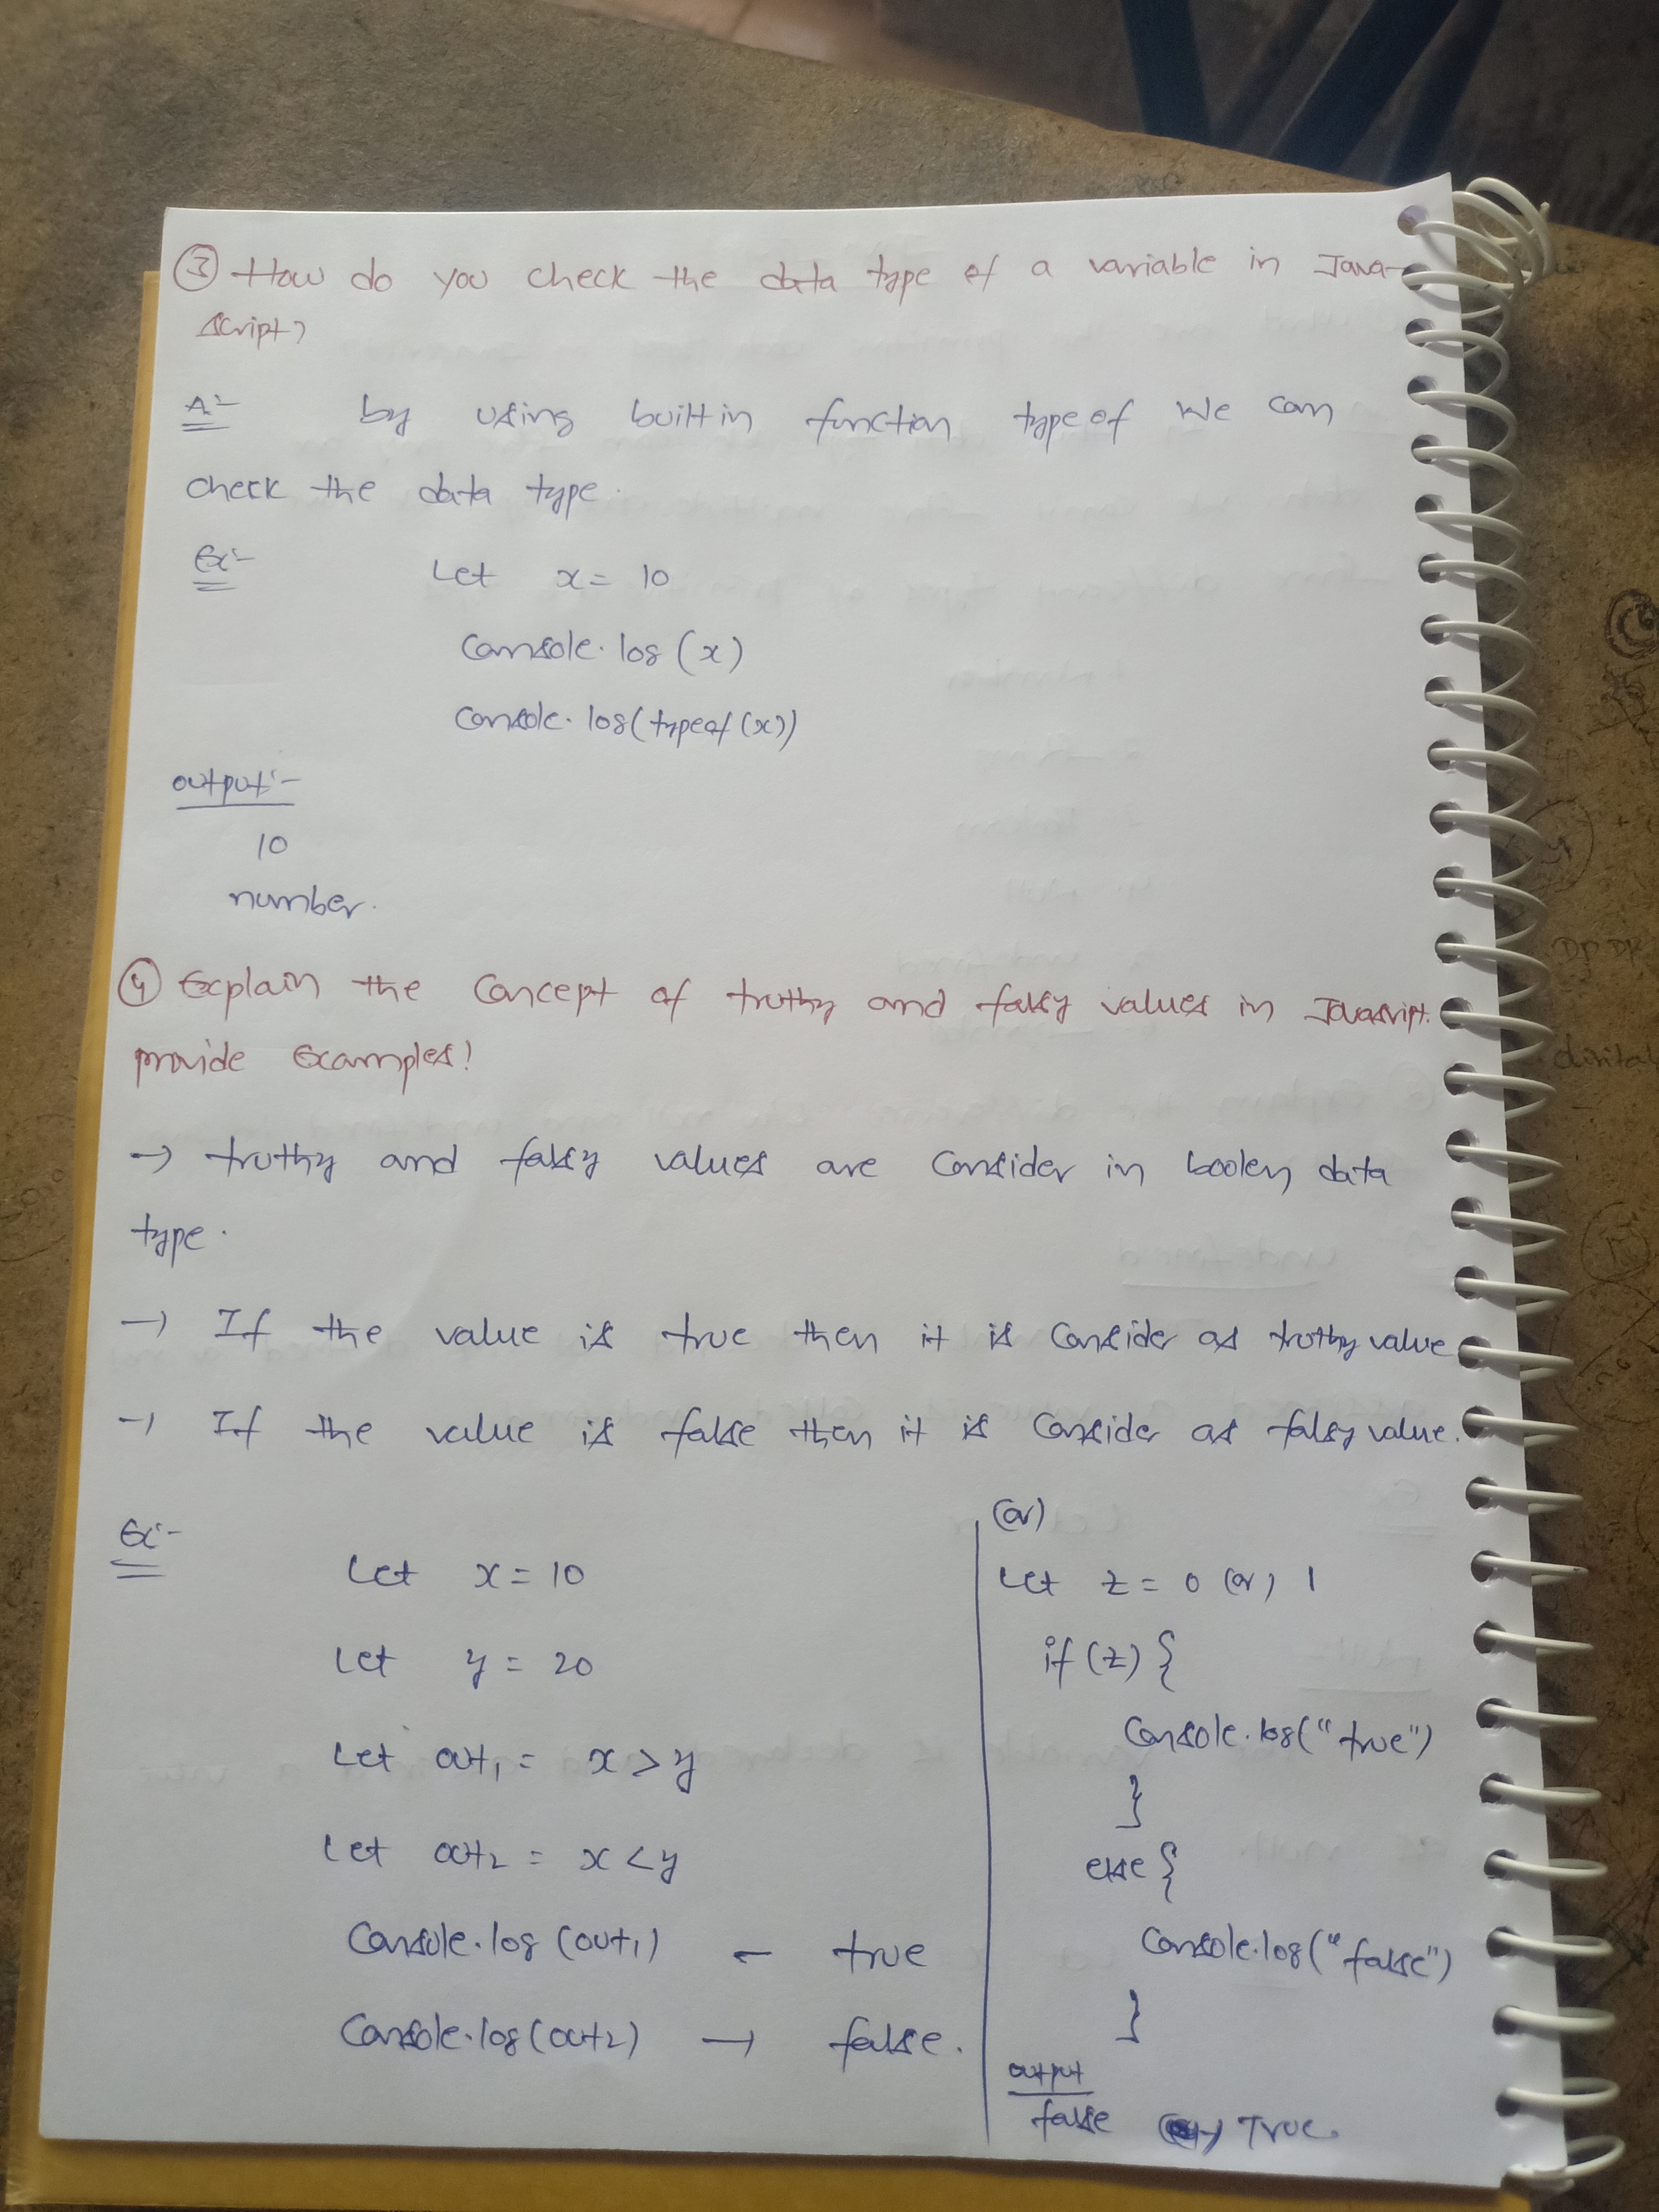 ③ How do you check the data type of a variable in Java-
script?
A:- by using built in function typeof we can
check the data type.
Ex:- Let x = 10
Console.log(x)
Console.log(typeof(x))
output:-
10
number.
④ Explain the Concept of truthy and falsy values in Javascript.
provide Examples!
→ truthy and falsy values are Consider in boolen data
type.
→ If the value is true then it is Consider as truthy value
→ If the value is false then it is Consider as falsy value.
Ex:-
Let x = 10
Let y = 20
Let out1 = x > y
Let out2 = x < y
Console.log(out1) - true
Console.log(out2) → false.
(or)
Let z = 0 (or) 1
if (z) {
Console.log("true")
}
else {
Console.log("false")
}
output
false True.